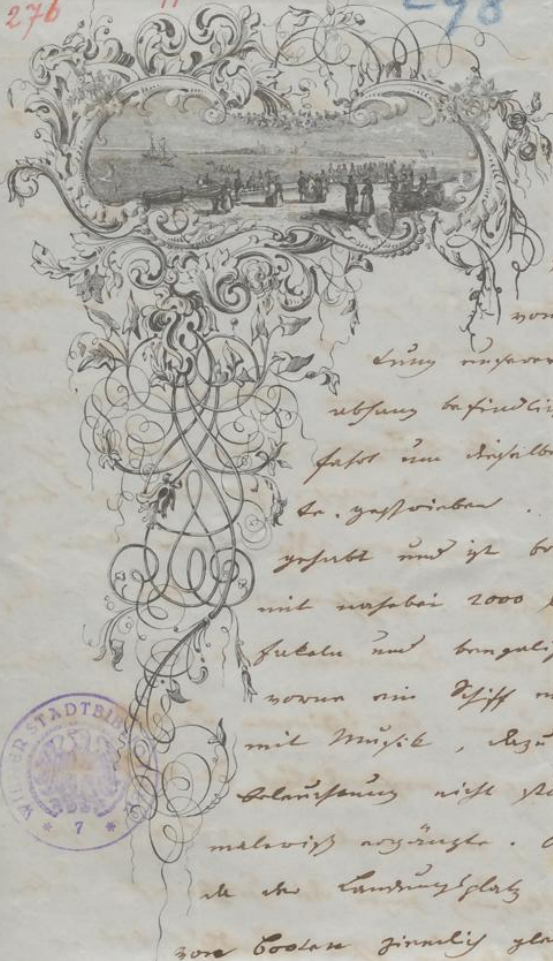 276
298
von
abhang befindlic
fahrt um dieselbe
te. geschrieben.
gehabt und ist be
mit nahebei 2000
fakeln und bengalis
vorne ein Schiff
mit Musik, dazu
beleuchtung nicht
malerisch ergänzte.
da der Landungsplatz
von Booten ziemlich gle
WIENER STADTBIB
* 7 *